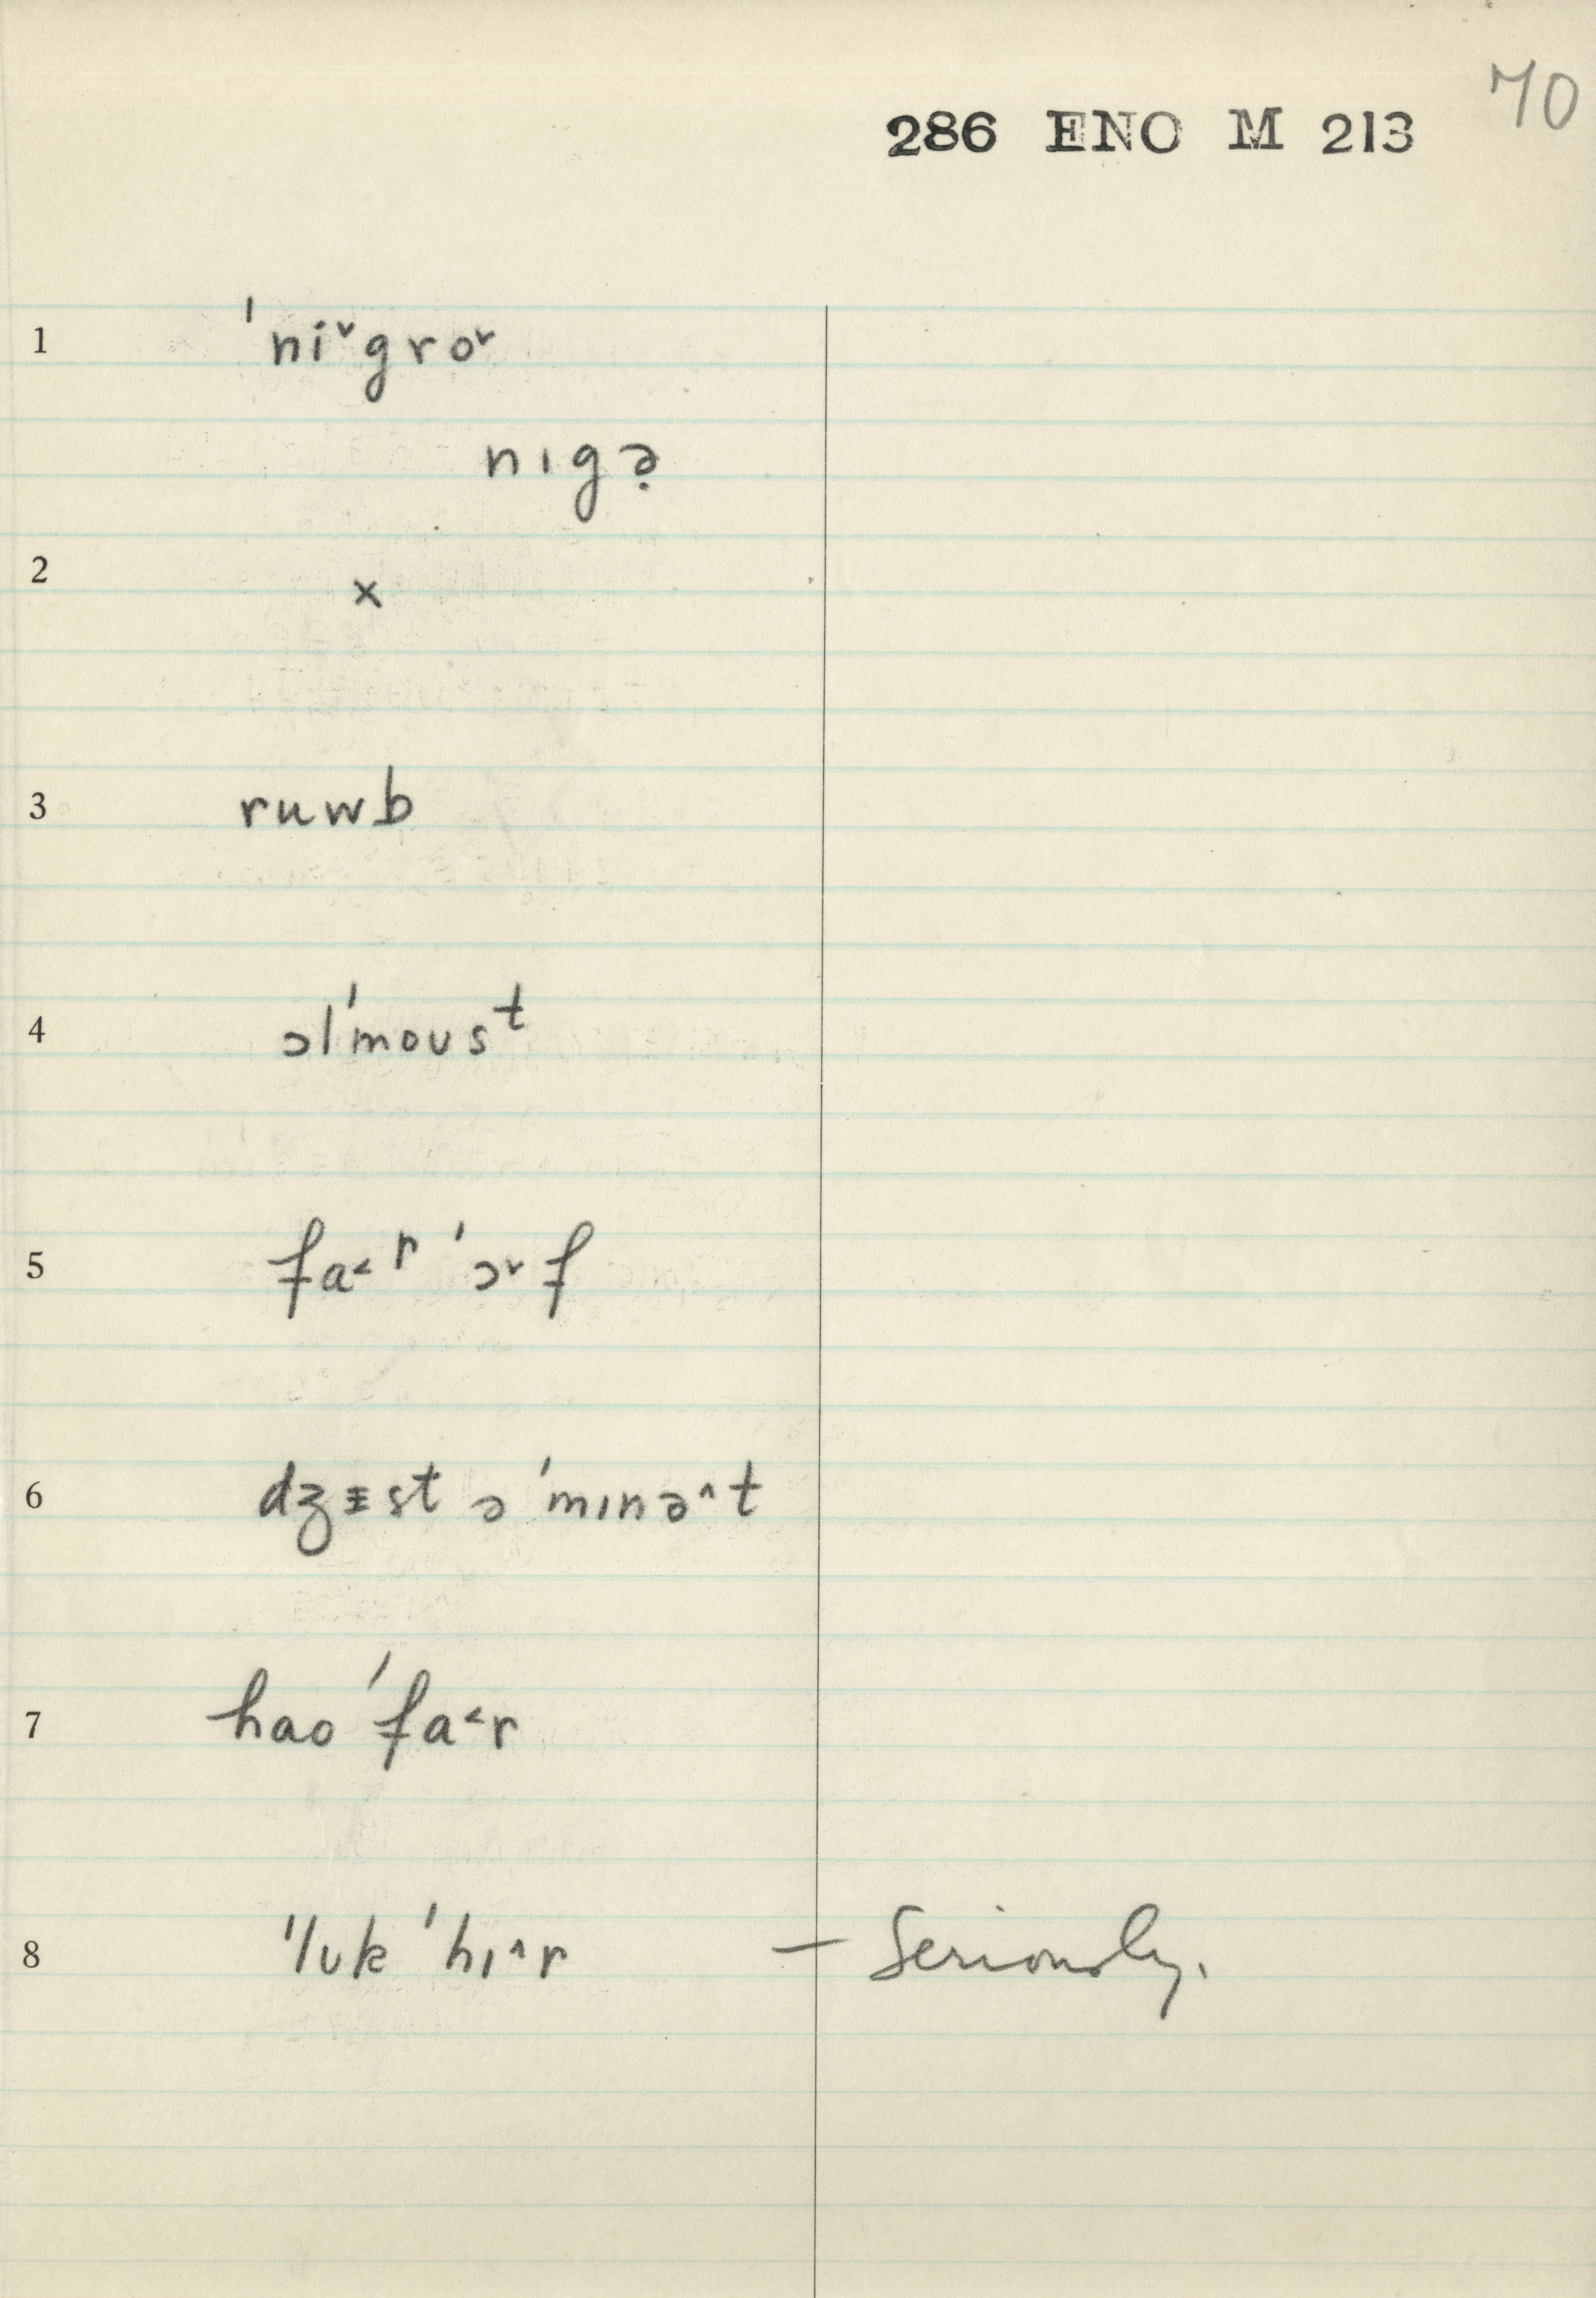 70
286 ENO M 213
1 ˈni˅gro˅
nɪgə̣
2 x
3 ruwb
4 ɔlˈmoʊsᵗ
5 fa˂ʳ ˈɔ˅f
6 dʒɪ̵st ə ˈmɪnə^t
7 hao ˈfa˂r
8 ˈlʊk ˈhɪ^r — Seriously.